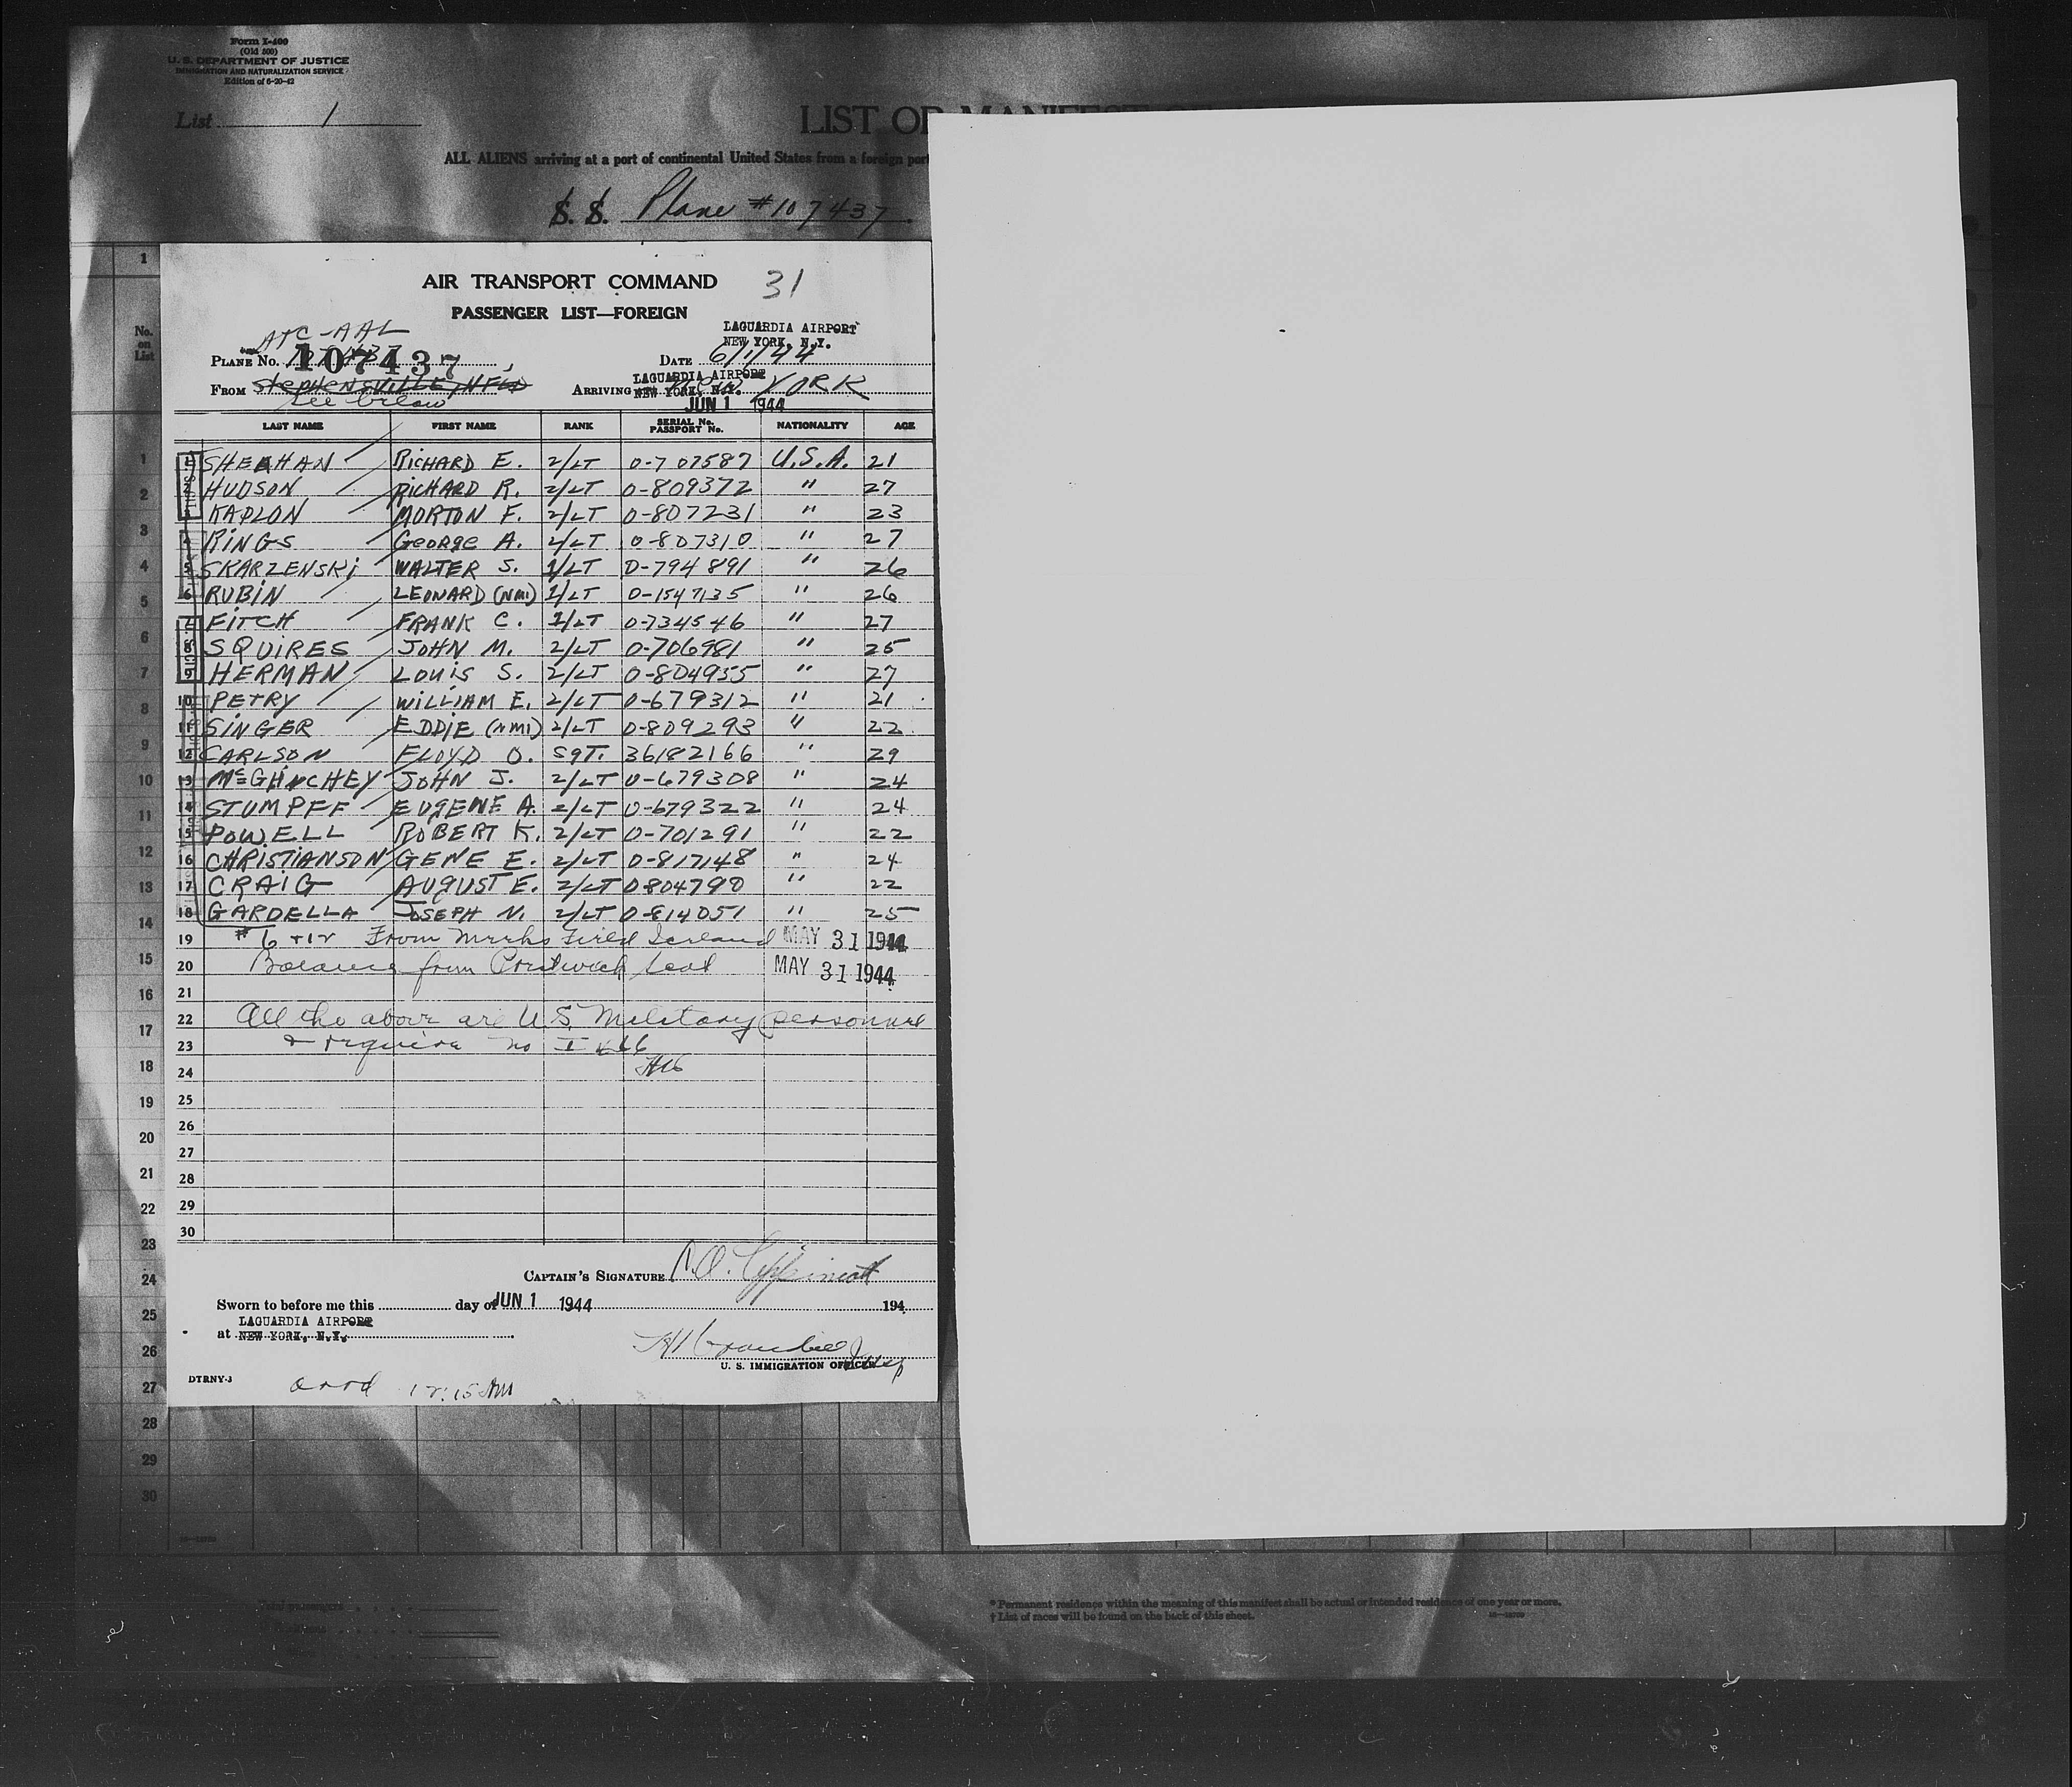 Form I-400
(Old 500)
U. S. DEPARTMENT OF JUSTICE
IMMIGRATION AND NATURALIZATION SERVICE
Edition of 6-20-42
List 1
LIST OR MANIFEST
ALL ALIENS arriving at a port of continental United States from a foreign port
S. S. Plane #107437
AIR TRANSPORT COMMAND 31
PASSENGER LIST—FOREIGN
ATC-AAL
LAGUARDIA AIRPORT
NEW YORK, N.Y.
PLANE No. 107437 DATE 6/1/44
LAGUARDIA AIRPORT
FROM STEPHENSVILLE, NFLD ARRIVING NEW YORK, N.Y. YORK
See below JUN 1 1944
LAST NAME FIRST NAME RANK SERIAL No. PASSPORT No. NATIONALITY AGE
1 SHEEHAN RICHARD E. 2/LT 0-707587 U.S.A. 21
2 HUDSON RICHARD R. 2/LT 0-809372 " 27
3 KAPLON MORTON F. 2/LT 0-807231 " 23
4 RINGS GEORGE A. 2/LT 0-807310 " 27
5 SKARZENSKI WALTER S. 1/LT 0-794891 " 26
6 RUBIN LEONARD (NMI) 1/LT 0-1547135 " 26
7 FITCH FRANK C. 1/LT 0-734546 " 27
8 SQUIRES JOHN M. 2/LT 0-706981 " 25
9 HERMAN LOUIS S. 2/LT 0-804955 " 27
10 PETRY WILLIAM E. 2/LT 0-679312 " 21
11 SINGER EDDIE (NMI) 2/LT 0-809293 " 22
12 CARLSON FLOYD O. SGT. 36182166 " 29
13 McGLINCHEY JOHN J. 2/LT 0-679308 " 24
14 STUMPFF EUGENE A. 2/LT 0-679322 " 24
15 POWELL ROBERT K. 2/LT 0-701291 " 22
16 CHRISTIANSON GENE E. 2/LT 0-817148 " 24
17 CRAIG AUGUST E. 2/LT 0-804790 " 22
18 GARDELLA JOSEPH N. 2/LT 0-814051 " 25
19 #6 + 12 From Meeks Field Iceland MAY 31 1944
20 Balance from Prestwick Scot MAY 31 1944
21
22 All the above are U.S. Military personnel
23 & require no I 466
24
25
26
27
28
29
30
CAPTAIN'S SIGNATURE
Sworn to before me this day of JUN 1 1944 194
LAGUARDIA AIRPORT
at NEW YORK, N.Y.
U. S. IMMIGRATION OFFICER
DTRNY-J
arrd 12:15 AM
No. on List
1
1
2
3
4
5
6
7
8
9
10
11
12
13
14
15
16
17
18
19
20
21
22
23
24
25
26
27
28
29
30
Total passengers
* Permanent residence within the meaning of this manifest shall be actual or intended residence of one year or more.
† List of races will be found on the back of this sheet.